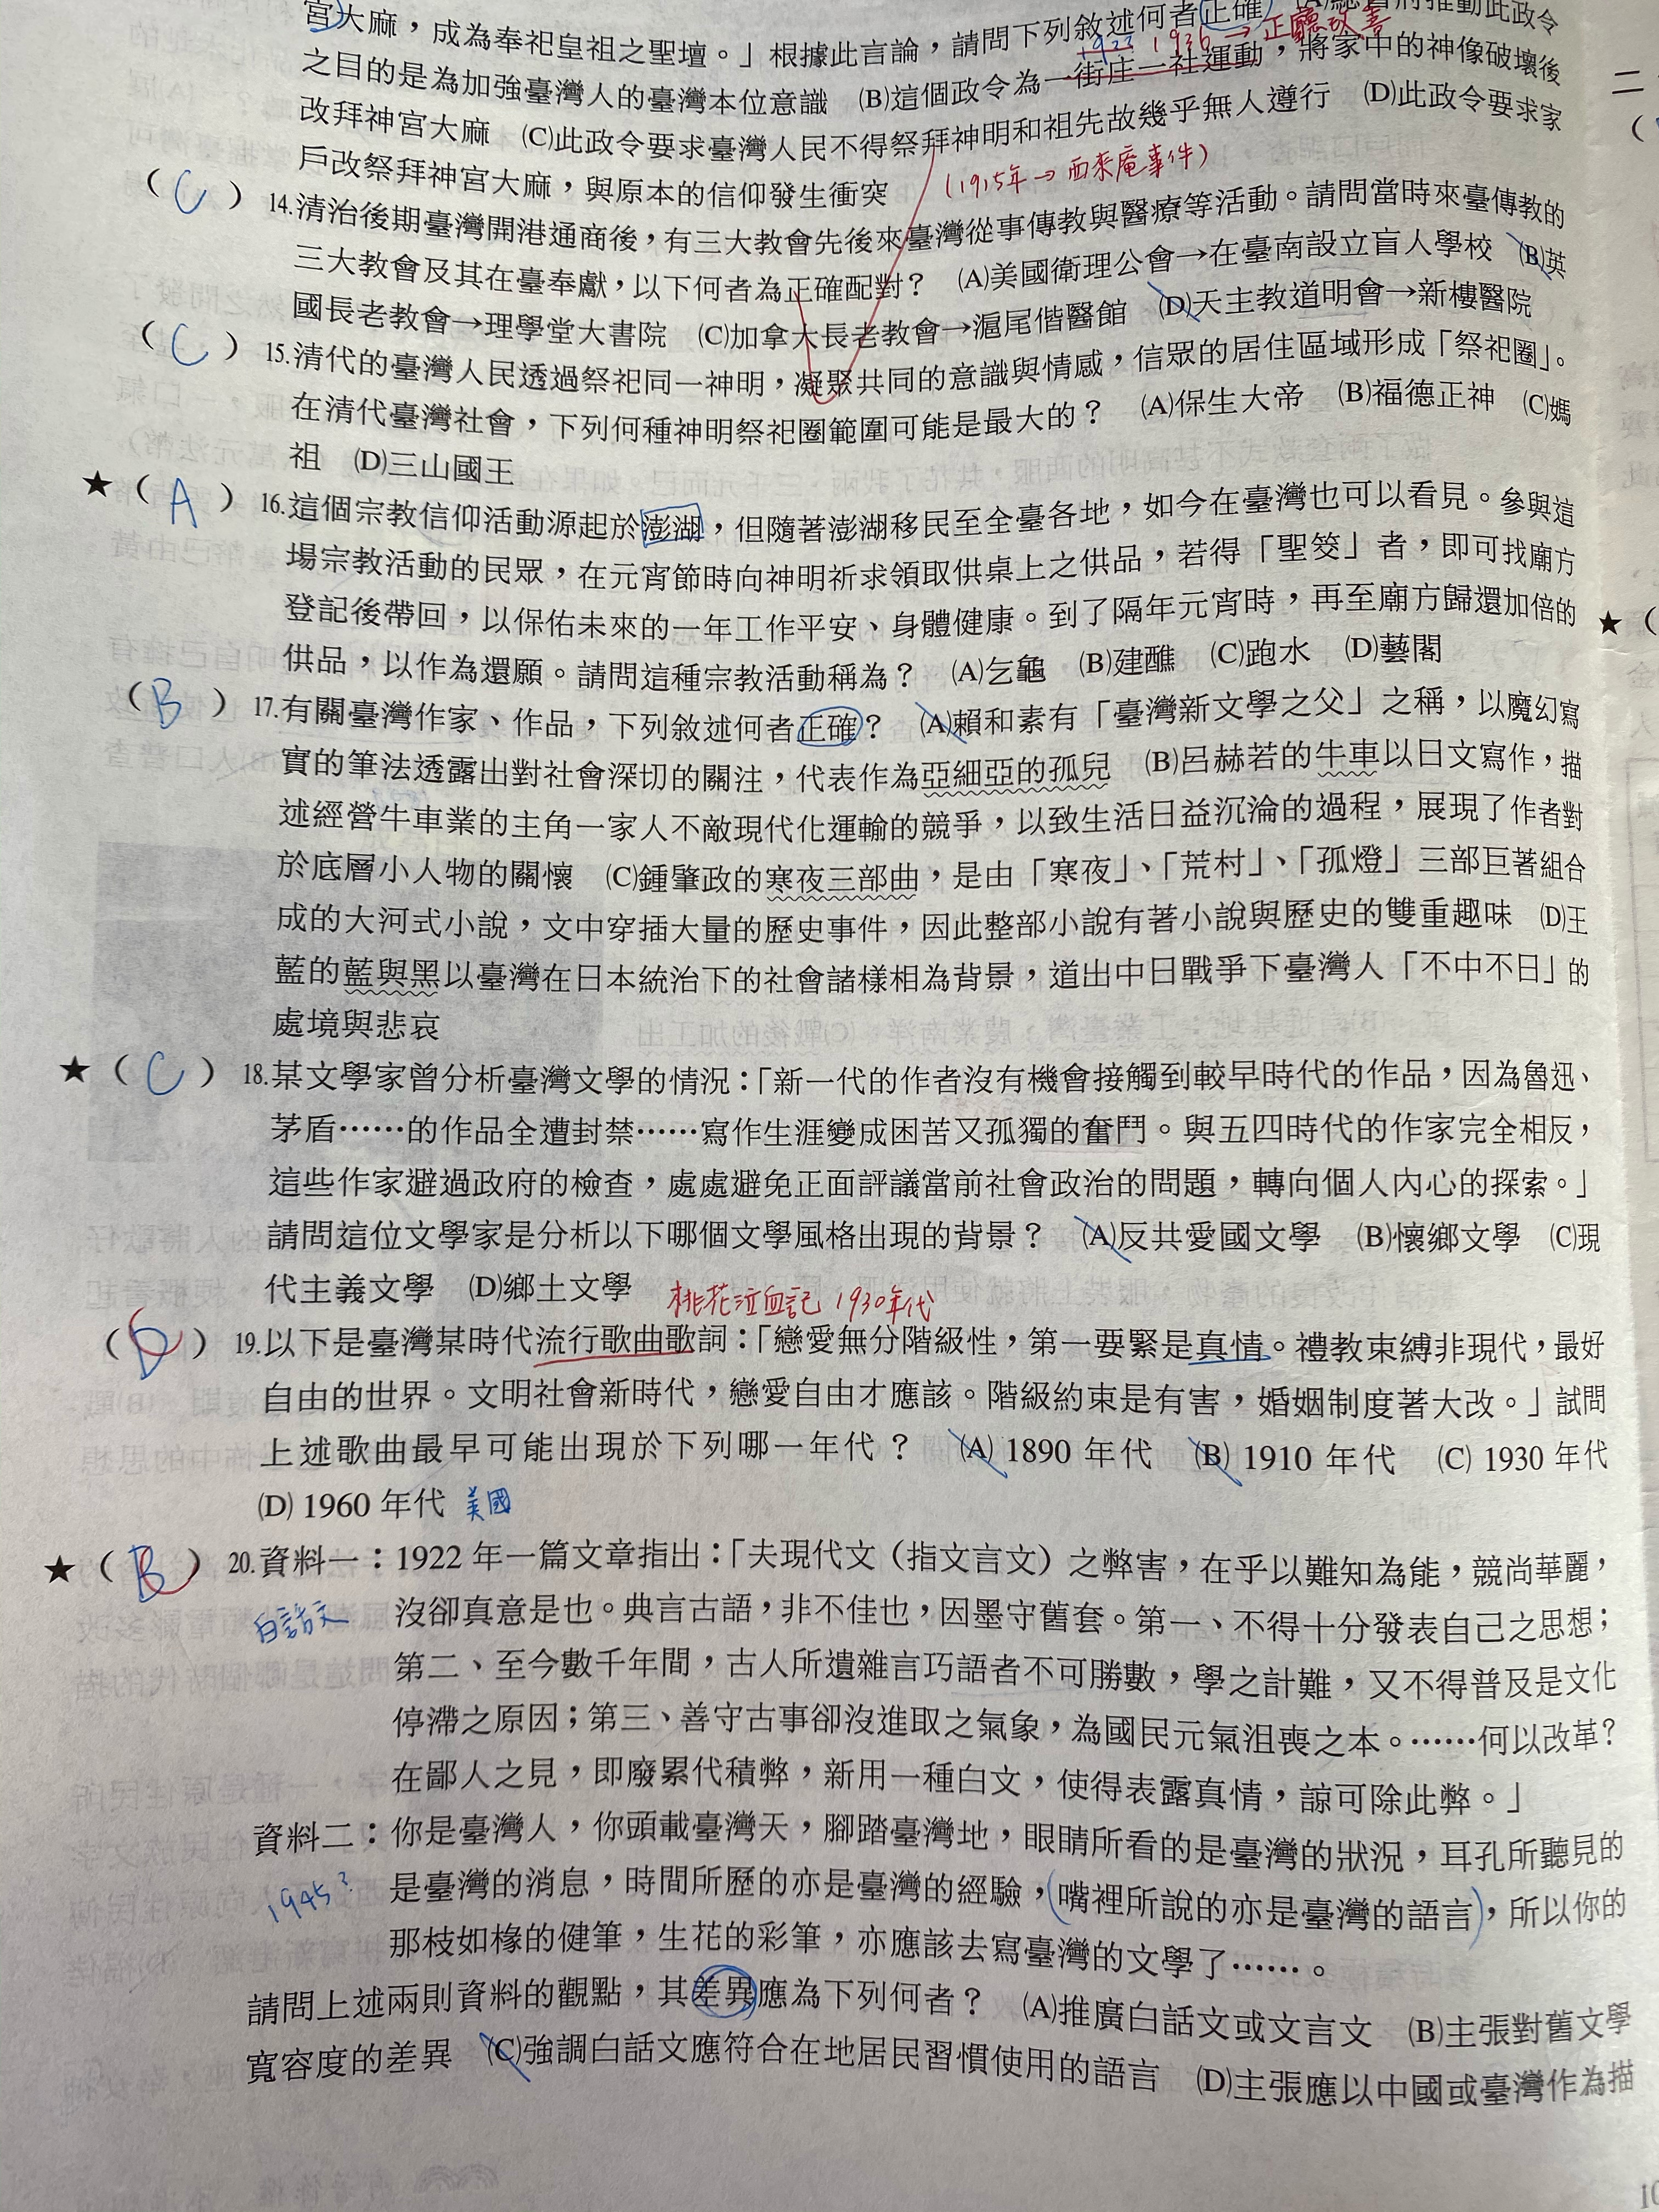 宮大麻，成為奉祀皇祖之聖壇。」根據此言論，請問下列敘述何者正確？(A)總督府推動此政令
1923 1936→正廳改善
之目的是為加強臺灣人的臺灣本位意識 (B)這個政令為一街庄一社運動，將家中的神像破壞後
改拜神宮大麻 (C)此政令要求臺灣人民不得祭拜神明和祖先故幾乎無人遵行 (D)此政令要求家
戶改祭拜神宮大麻，與原本的信仰發生衝突
(1915年→西來庵事件)
(C)14.清治後期臺灣開港通商後，有三大教會先後來臺灣從事傳教與醫療等活動。請問當時來臺傳教的
三大教會及其在臺奉獻，以下何者為正確配對？ (A)美國衛理公會→在臺南設立盲人學校 (B)英
國長老教會→理學堂大書院 (C)加拿大長老教會→滬尾偕醫館 (D)天主教道明會→新樓醫院
(C)15.清代的臺灣人民透過祭祀同一神明，凝聚共同的意識與情感，信眾的居住區域形成「祭祀圈」。
在清代臺灣社會，下列何種神明祭祀圈範圍可能是最大的？ (A)保生大帝 (B)福德正神 (C)媽
祖 (D)三山國王
★(A)16.這個宗教信仰活動源起於澎湖，但隨著澎湖移民至全臺各地，如今在臺灣也可以看見。參與這
場宗教活動的民眾，在元宵節時向神明祈求領取供桌上之供品，若得「聖筊」者，即可找廟方
登記後帶回，以保佑未來的一年工作平安、身體健康。到了隔年元宵時，再至廟方歸還加倍的
供品，以作為還願。請問這種宗教活動稱為？ (A)乞龜 (B)建醮 (C)跑水 (D)藝閣
(B)17.有關臺灣作家、作品，下列敘述何者正確？ (A)賴和素有「臺灣新文學之父」之稱，以魔幻寫
實的筆法透露出對社會深切的關注，代表作為亞細亞的孤兒 (B)呂赫若的牛車以日文寫作，描
述經營牛車業的主角一家人不敵現代化運輸的競爭，以致生活日益沉淪的過程，展現了作者對
於底層小人物的關懷 (C)鍾肇政的寒夜三部曲，是由「寒夜」、「荒村」、「孤燈」三部巨著組合
成的大河式小說，文中穿插大量的歷史事件，因此整部小說有著小說與歷史的雙重趣味 (D)王
藍的藍與黑以臺灣在日本統治下的社會諸樣相為背景，道出中日戰爭下臺灣人「不中不日」的
處境與悲哀
★(C)18.某文學家曾分析臺灣文學的情況：「新一代的作者沒有機會接觸到較早時代的作品，因為魯迅、
茅盾……的作品全遭封禁……寫作生涯變成困苦又孤獨的奮鬥。與五四時代的作家完全相反，
這些作家避過政府的檢查，處處避免正面評議當前社會政治的問題，轉向個人內心的探索。」
請問這位文學家是分析以下哪個文學風格出現的背景？ (A)反共愛國文學 (B)懷鄉文學 (C)現
代主義文學 (D)鄉土文學
桃花泣血記 1930年代
(D)19.以下是臺灣某時代流行歌曲歌詞：「戀愛無分階級性，第一要緊是真情。禮教束縛非現代，最好
自由的世界。文明社會新時代，戀愛自由才應該。階級約束是有害，婚姻制度著大改。」試問
上述歌曲最早可能出現於下列哪一年代？ (A) 1890 年代 (B) 1910 年代 (C) 1930 年代
(D) 1960 年代 美國
★(B)20.資料一：1922 年一篇文章指出：「夫現代文（指文言文）之弊害，在乎以難知為能，競尚華麗，
白話文
沒卻真意是也。典言古語，非不佳也，因墨守舊套。第一、不得十分發表自己之思想；
第二、至今數千年間，古人所遺雜言巧語者不可勝數，學之計難，又不得普及是文化
停滯之原因；第三、善守古事卻沒進取之氣象，為國民元氣沮喪之本。……何以改革？
在鄙人之見，即廢累代積弊，新用一種白文，使得表露真情，諒可除此弊。」
資料二：你是臺灣人，你頭戴臺灣天，腳踏臺灣地，眼睛所看的是臺灣的狀況，耳孔所聽見的
1945？
是臺灣的消息，時間所歷的亦是臺灣的經驗，嘴裡所說的亦是臺灣的語言，所以你的
那枝如椽的健筆，生花的彩筆，亦應該去寫臺灣的文學了……。
請問上述兩則資料的觀點，其差異應為下列何者？ (A)推廣白話文或文言文 (B)主張對舊文學
寬容度的差異 (C)強調白話文應符合在地居民習慣使用的語言 (D)主張應以中國或臺灣作為描